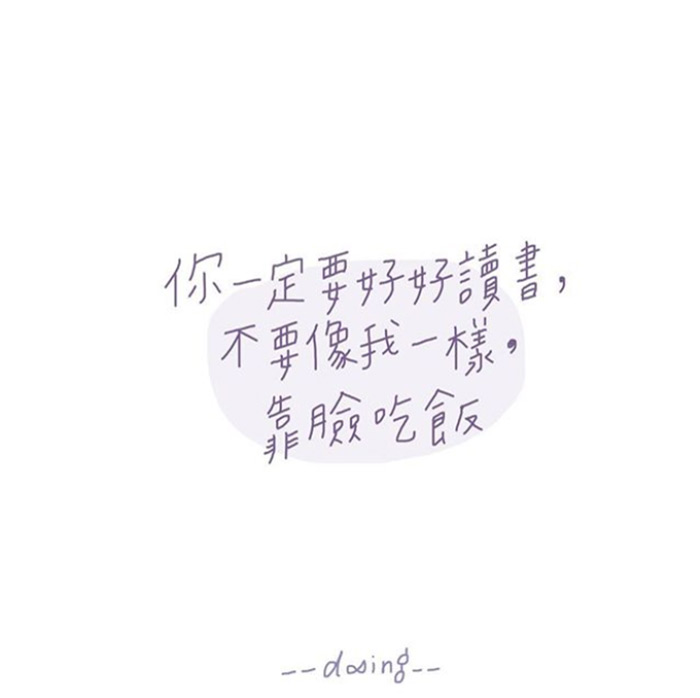 你一定要好好讀書,
不要像我一樣,
靠臉吃飯
--dosing--